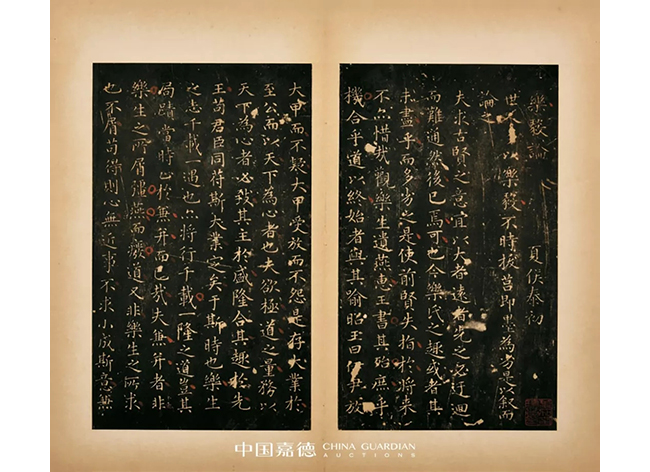 樂毅論 夏侯泰初
世人以樂毅不時拔莒即墨為劣是以叙而
論之
夫求古賢之意宜以大者遠者先之必迂迴
而難通然後已焉可也今樂氏之趣或者其
未盡乎而多劣之是使前賢失指於將来
不亦惜哉觀樂生遺燕惠王書其殆庶乎
機合乎道以終始者與其喻昭王曰伊尹放
大甲而不疑大甲受放而不怨是存大業於
至公而以天下為心者也夫欲極道之量務以
天下為心者必致其主於盛隆合其趣於先
王苟君臣同符斯大業定矣于斯時也樂生
之志千載一遇也亦將行千載一隆之道豈其
局蹟當時止於兼并而已哉夫兼并者非
樂生之所屑彊燕而廢道又非樂生之所求
也不屑苟得則心無近事不求小成斯意兼
中国嘉德 CHINA GUARDIAN
AUCTIONS